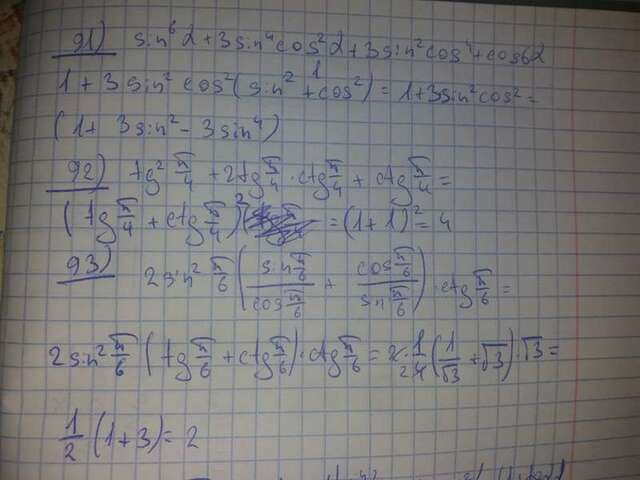 91) sin⁶α + 3sin⁴cos²α + 3sin²cos⁴ + cos6α
1 + 3sin² cos²(sin² + cos²) = 1 + 3sin²cos² =
(1 + 3sin² - 3sin⁴)
92) tg² π/4 + 2tg π/4 · ctg π/4 + ctg π/4 =
(tg π/4 + ctg π/4)² = (1+1)² = 4
93) 2sin² π/6 (sin π/6 / cos π/6 + cos π/6 / sin π/6) · ctg π/6 =
2sin² π/6 (tg π/6 + ctg π/6) · ctg π/6 = 2 · 1/4 (1/√3 + √3) · √3 =
1/2 (1+3) = 2